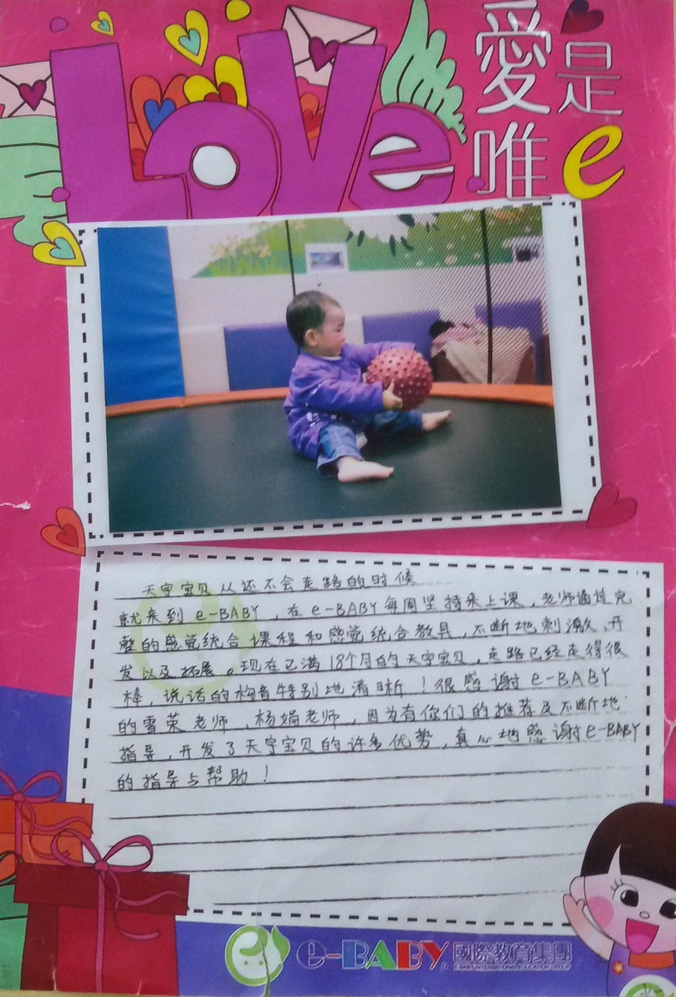 LOVe
愛是
唯e
天宇宝贝从还不会走路的时候
就来到e-BABY，在e-BABY每周坚持来上课，老师通过完
整的感觉统合课程和感觉统合教具，不断地刺激、开
发以及拓展。现在已满18个月的天宇宝贝，走路已经走得很
棒，说话的构音特别地清晰！很感谢e-BABY
的雪荣老师、杨娟老师，因为有你们的推荐及不断地
指导，开发了天宇宝贝的许多优势，真心地感谢e-BABY
的指导与帮助！
e-BABY 國際教育集團
E-BABY INTERNATIONAL EDUCATION GROUP